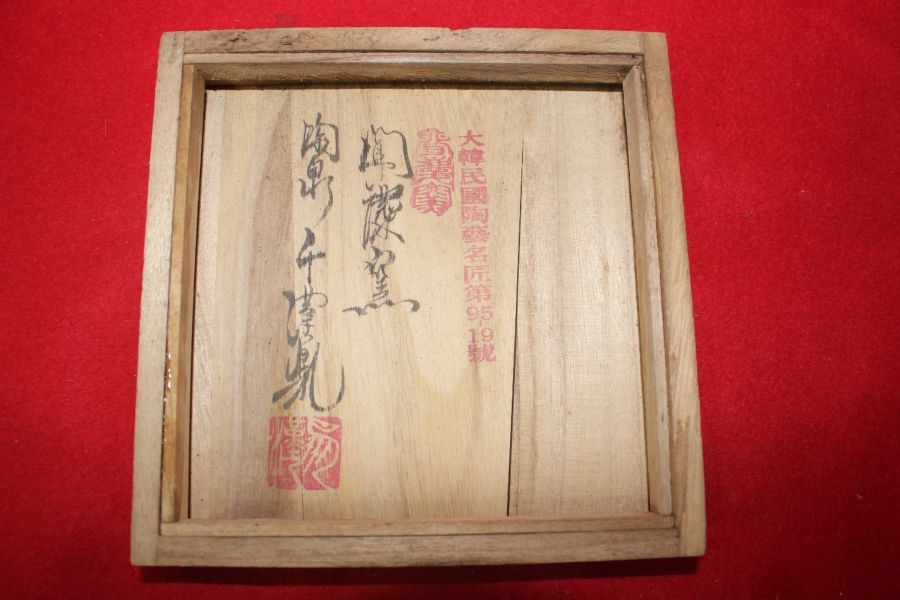 大韓民國陶藝名匠第95-19號
聞慶窯
陶泉 千漢鳳